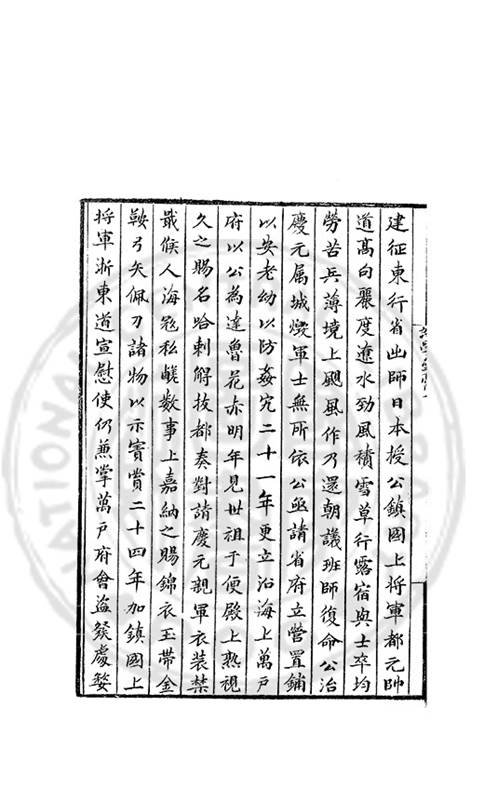 建征東行省出師日本授公鎮國上将軍都元帥
道髙白麗度遼水勁風積雪草行露宿與士卒均
勞苦兵薄境上颶風作乃還朝議班師復命公治
慶元属城燬軍士無所依公亟請省府立營置鋪
以安老幼以防姦宄二十一年更立沿海上萬戸
府以公為達魯花赤明年見世祖于便殿上熟視
久之賜名哈剌䚟拔都奏對請慶元親軍衣装禁
戢候人海冦私鹺數事上嘉納之賜錦衣玉帶金
鞍弓矢佩刀諸物以示賓賞二十四年加鎮國上
将軍浙東道宣慰使仍兼掌萬戸府會盗發處婺
NATIONAL